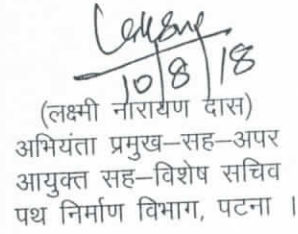 10/8/18
(लक्ष्मी नारायण दास)
अभियंता प्रमुख–सह–अपर
आयुक्त सह–विशेष सचिव
पथ निर्माण विभाग, पटना ।